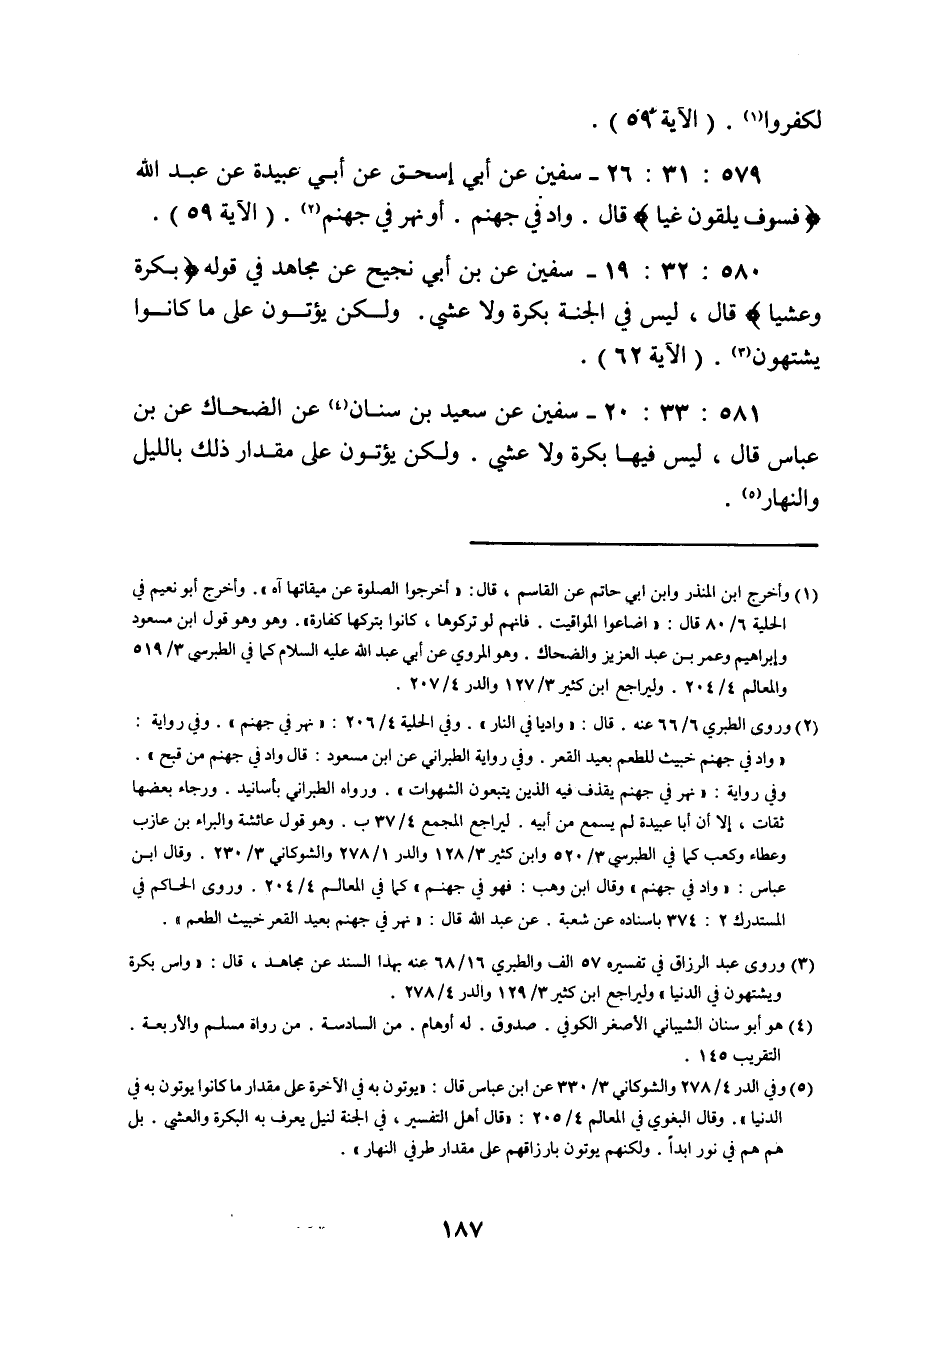 لكفروا(١) . ( الآية ٥٩ ) .
٥٧٩ : ٣١ : ٢٦ ـ سفين عن أبي إسحق عن أبي عبيدة عن عبد الله
﴿ فسوف يلقون غيا ﴾ قال . واد في جهنم . أو نهر في جهنم(٢) . ( الآية ٥٩ ) .
٥٨٠ : ٣٢ : ١٩ ـ سفين عن بن أبي نجيح عن مجاهد في قوله ﴿ بكرة
وعشيا ﴾ قال ، ليس في الجنة بكرة ولا عشي . ولكن يؤتون على ما كانوا
يشتهون(٣) . ( الآية ٦٢ ) .
٥٨١ : ٣٣ : ٢٠ ـ سفين عن سعيد بن سنان(٤) عن الضحاك عن بن
عباس قال ، ليس فيها بكرة ولا عشي . ولكن يؤتون على مقدار ذلك بالليل
والنهار(٥) .
(١) وأخرج ابن المنذر وابن ابي حاتم عن القاسم ، قال : « أخرجوا الصلوة عن ميقاتها آه » . وأخرج أبو نعيم في
الحلية ٦/ ٨٠ قال : « اضاعوا المواقيت . فانهم لو تركوها ، كانوا بتركها كفارة» . وهو وهو قول ابن مسعود
وإبراهيم وعمر بن عبد العزيز والضحاك . وهو المروي عن أبي عبد الله عليه السلام كما في الطبرسي ٣/ ٥١٩
والمعالم ٤/ ٢٠٤ . وليراجع ابن كثير ٣/ ١٢٧ والدر ٤/ ٢٠٧ .
(٢) وروى الطبري ٦/ ٦٦ عنه . قال : « واديا في النار » . وفي الحلية ٤/ ٢٠٦ : « نهر في جهنم » . وفي رواية :
« واد في جهنم خبيث للطعم بعيد القعر . وفي رواية الطبراني عن ابن مسعود : قال واد في جهنم من قيح » .
وفي رواية : « نهر في جهنم يقذف فيه الذين يتبعون الشهوات » . ورواه الطبراني بأسانيد . ورجاء بعضها
ثقات ، إلا أن أبا عبيدة لم يسمع من أبيه . ليراجع المجمع ٤/ ٣٧ ب . وهو قول عائشة والبراء بن عازب
وعطاء وكعب كما في الطبرسي ٣/ ٥٢٠ وابن كثير ٣/ ١٢٨ والدر ١/ ٢٧٨ والشوكاني ٣/ ٢٣٠ . وقال ابن
عباس : « واد في جهنم » وقال ابن وهب : فهو في جهنم » كما في المعالم ٤/ ٢٠٤ . وروى الحاكم في
المستدرك ٢ : ٣٧٤ باسناده عن شعبة . عن عبد الله قال : « نهر في جهنم بعيد القعر خبيث الطعم » .
(٣) وروى عبد الرزاق في تفسيره ٥٧ الف والطبري ١٦/ ٦٨ عنه بهذا السند عن مجاهد ، قال : « واس بكرة
ويشتهون في الدنيا » وليراجع ابن كثير ٣/ ١٢٩ والدر ٤/ ٢٧٨ .
(٤) هو أبو سنان الشيباني الأصغر الكوفي . صدوق . له أوهام . من السادسة . من رواة مسلم والأربعة .
التقريب ١٤٥ .
(٥) وفي الدر ٤/ ٢٧٨ والشوكاني ٣/ ٣٣٠ عن ابن عباس قال : «يوتون به في الآخرة على مقدار ما كانوا يوتون به في
الدنيا » . وقال البغوي في المعالم ٤/ ٢٠٥ : «قال أهل التفسير ، في الجنة لنيل يعرف به البكرة والعشي . بل
هم هم في نور ابداً . ولكنهم يوتون بارزاقهم على مقدار طرفي النهار » .
١٨٧